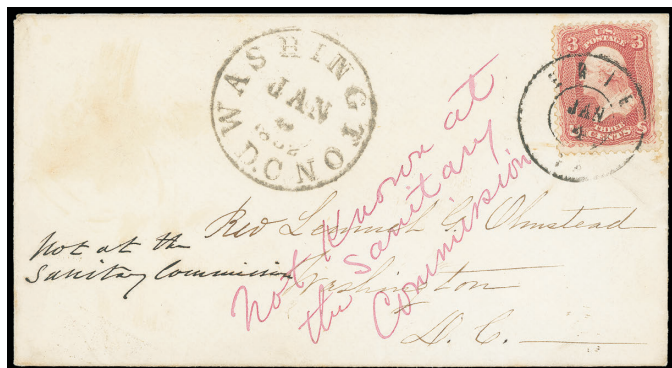 WASHINGTON D.C.
JAN
1862
U.S. POSTAGE
3 3
THREE CENTS
ERIE
JAN
Rev G. Olmstead
Washington
D. C.
Not at the
Sanitary Commission
Not Known at
the Sanitary
Commission